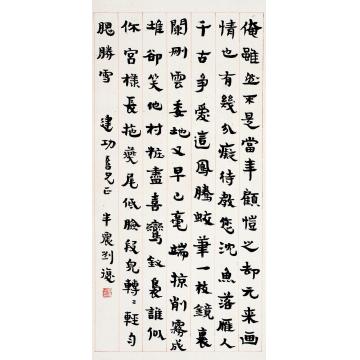 俺雖並不是當年顧愷之却元来画
情也有幾分癡待教您沈魚落雁人
千古爭愛這鳳騰蛟筆一枝鏡裏
闌刪雲委地又早已毫端掠削霧成
堆卻笑他村粧盡喜鸞釵裊誰似
你宮樣長拖燕尾低臉段兒轉〻輕勻
腮勝雪 建功吾兄正 半農劉復